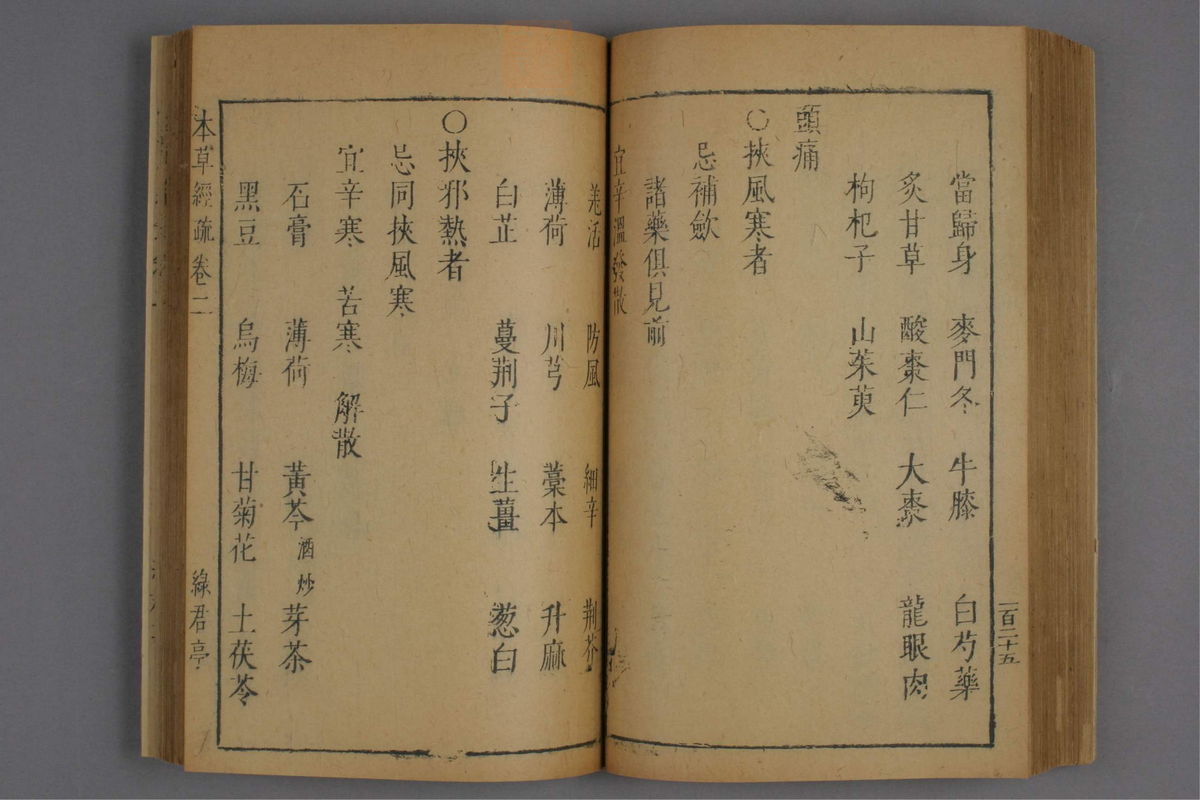 一百二十五
當歸身 麥門冬 牛膝 白芍藥
炙甘草 酸棗仁 大棗 龍眼肉
枸杞子 山茱萸
頭痛
○挾風寒者
忌補歛
諸藥俱見前
宜辛溫發散
羗活 防風 細辛 荆芥
薄荷 川芎 藁本 升麻
白芷 蔓荆子 生薑 葱白
○挾邪熱者
忌同挾風寒
宜辛寒 苦寒 解散
石膏 薄荷 黃芩酒炒 芽茶
黑豆 烏梅 甘菊花 土茯苓
本草經疏卷二 綠君亭